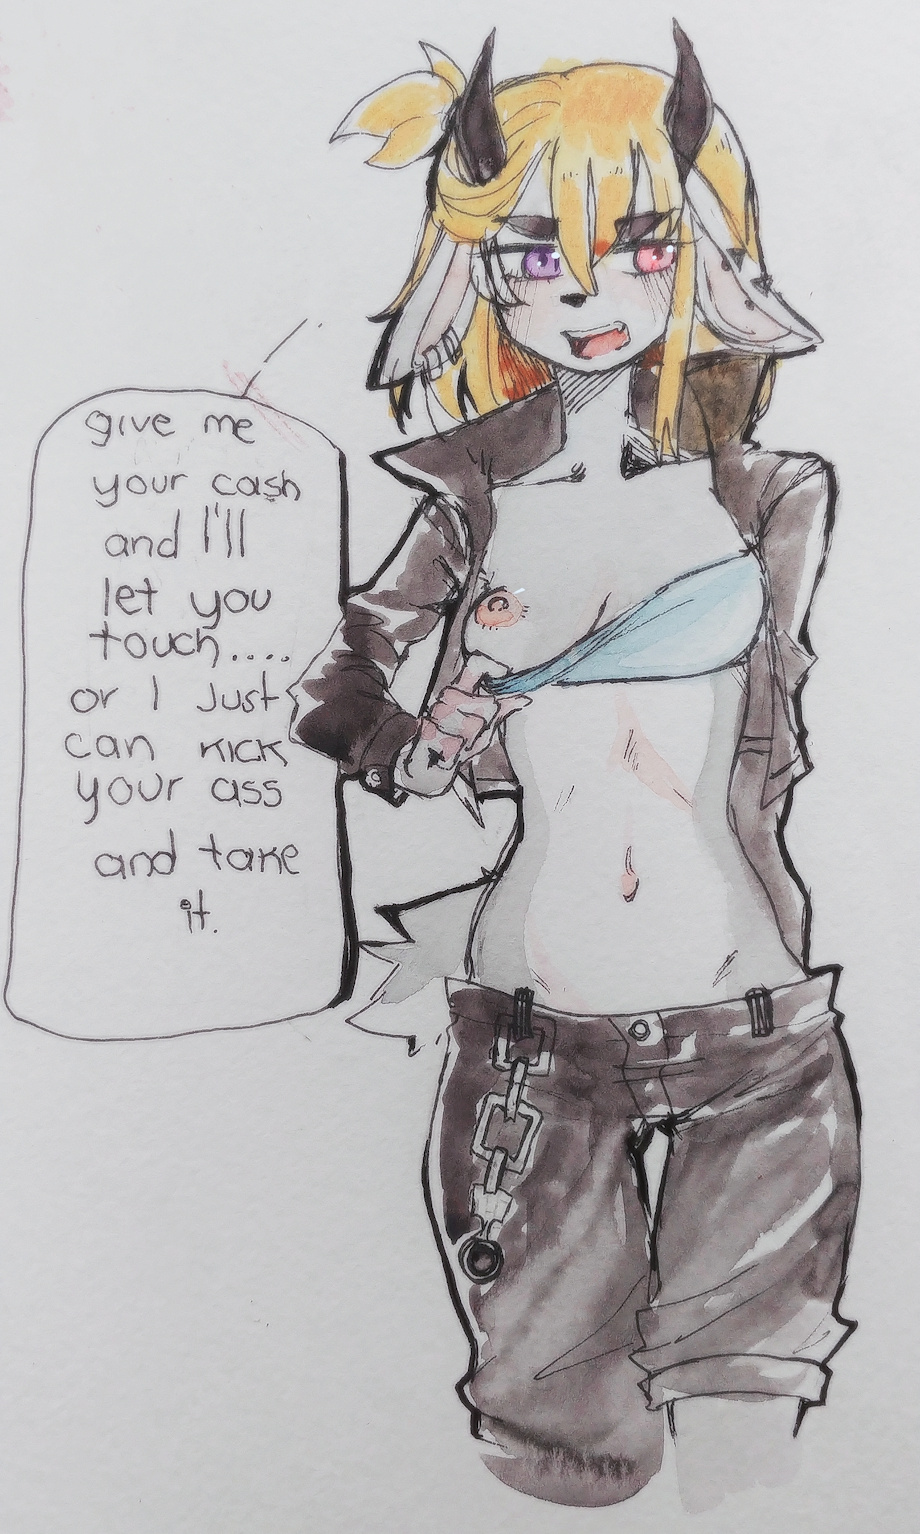 give me
your cash
and I'll
let you
touch....
or I just
can kick
your ass
and take
it.